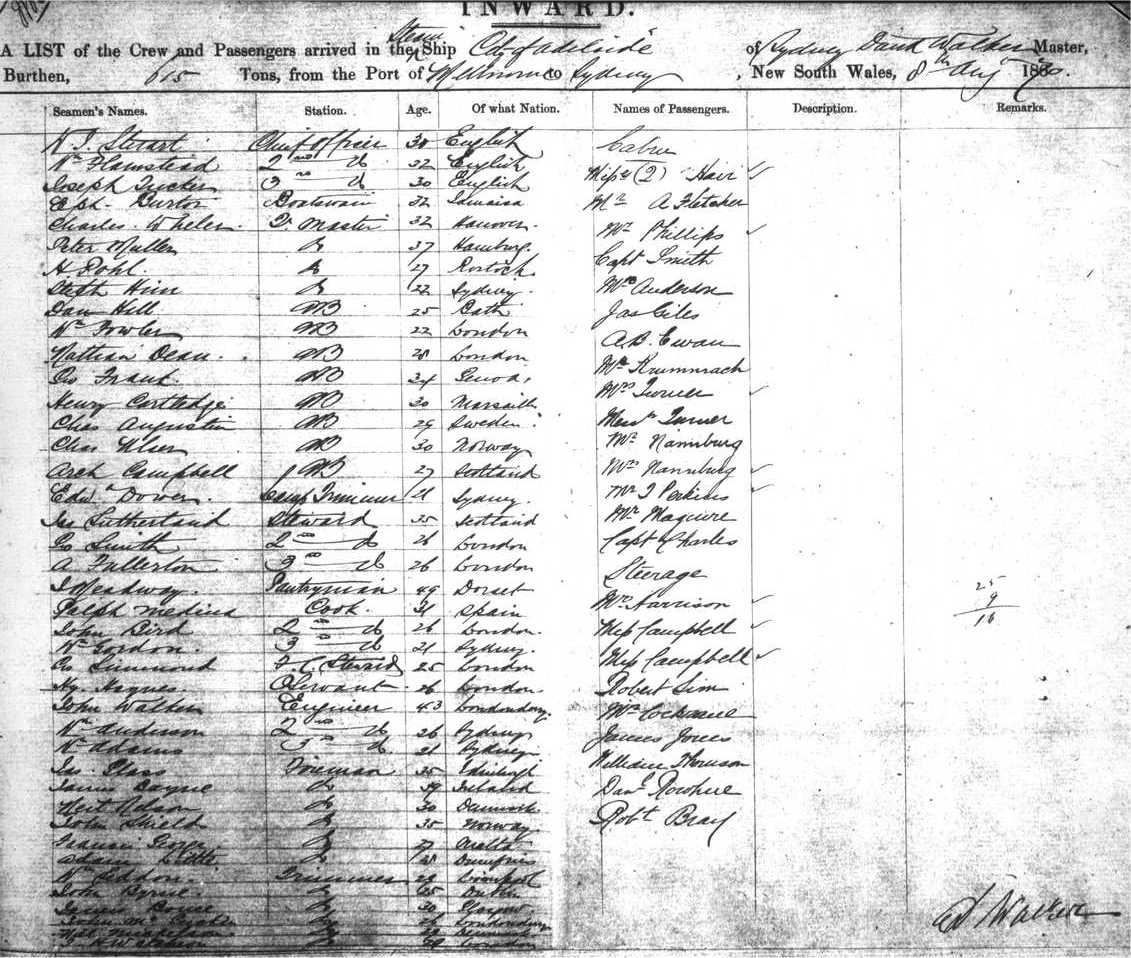 INWARD.
A LIST of the Crew and Passengers arrived in the Steam Ship City of Adelaide of Sydney David Walker Master,
Burthen, 615 Tons, from the Port of Melbourne to Sydney, New South Wales, 8th Aug 1870.
Seamen's Names. Station. Age. Of what Nation. Names of Passengers. Description. Remarks.
Stewart Chief Officer 30 English Cabin
Wm Flamstead 2nd do 32 English Miss (2)
Joseph Tucker 3rd do 30 English Mr A Fletcher
Burton Boatswain 32 Jamaica
Charles Wheler Qr Master 32 Hanover Mr Phillips
Peter Muller Do 37 Hamburg Capt Smith
H. Pohl Do 27 Rostock
Steph Him Do 22 Sydney Mrs Anderson
Dan Hill AB 25 Bath Jas Giles
Wm Fowler AB 22 London A.B. Ewan
Nathan Dean AB 28 London Mr Krummrach
Geo Frank AB 34 Genoa Mrs
Henry Cartledge AB 30 Marseille
Chas Augustin AB 29 Sweden Turner
Chas Ulsen AB 30 Norway Mr Nannburg
Arch Campbell AB 27 Scotland Mrs Nannburg
Edwd Dower Lamp Trimmer 21 Sydney Mr J Perkins
Jas Sutherland Steward 35 Scotland Mr Maguire
Geo Smith 2nd do 26 London Capt Charles
A Fullerton 3rd do 26 London Steerage
J Meadway Pantryman 49 Dorset Mrs Harrison 25
Ralph Medina Cook 31 Spain 9
John Bird 2nd do 26 London Miss Campbell 16
Wm Gordon 3rd do 21 Sydney
Geo Simmond F.C. Steward 25 London Miss Campbell
Hy. Haynes Servant 26 London Robert Sim
John Walker Engineer 43 Londonderry Mr Cochrane
Wm Anderson 2nd do 26 Sydney James Jones
Wm Adams 3rd do 21 Sydney William Thomson
Jas. Glass Fireman 35 Edinburgh
James Cayne Do 39 Ireland Danl Rowhue
Nelson Do 30 Denmark
John Shield Do 35 Norway Robt Bray
Do 27 Malta
Adam Little Do 28 Dumfries
Wm Seddon Trimmer 28 Liverpool
John Byrne Do 25 Dublin
Do 30 Glasgow
Do Londonderry
Do
Do London
D Walker